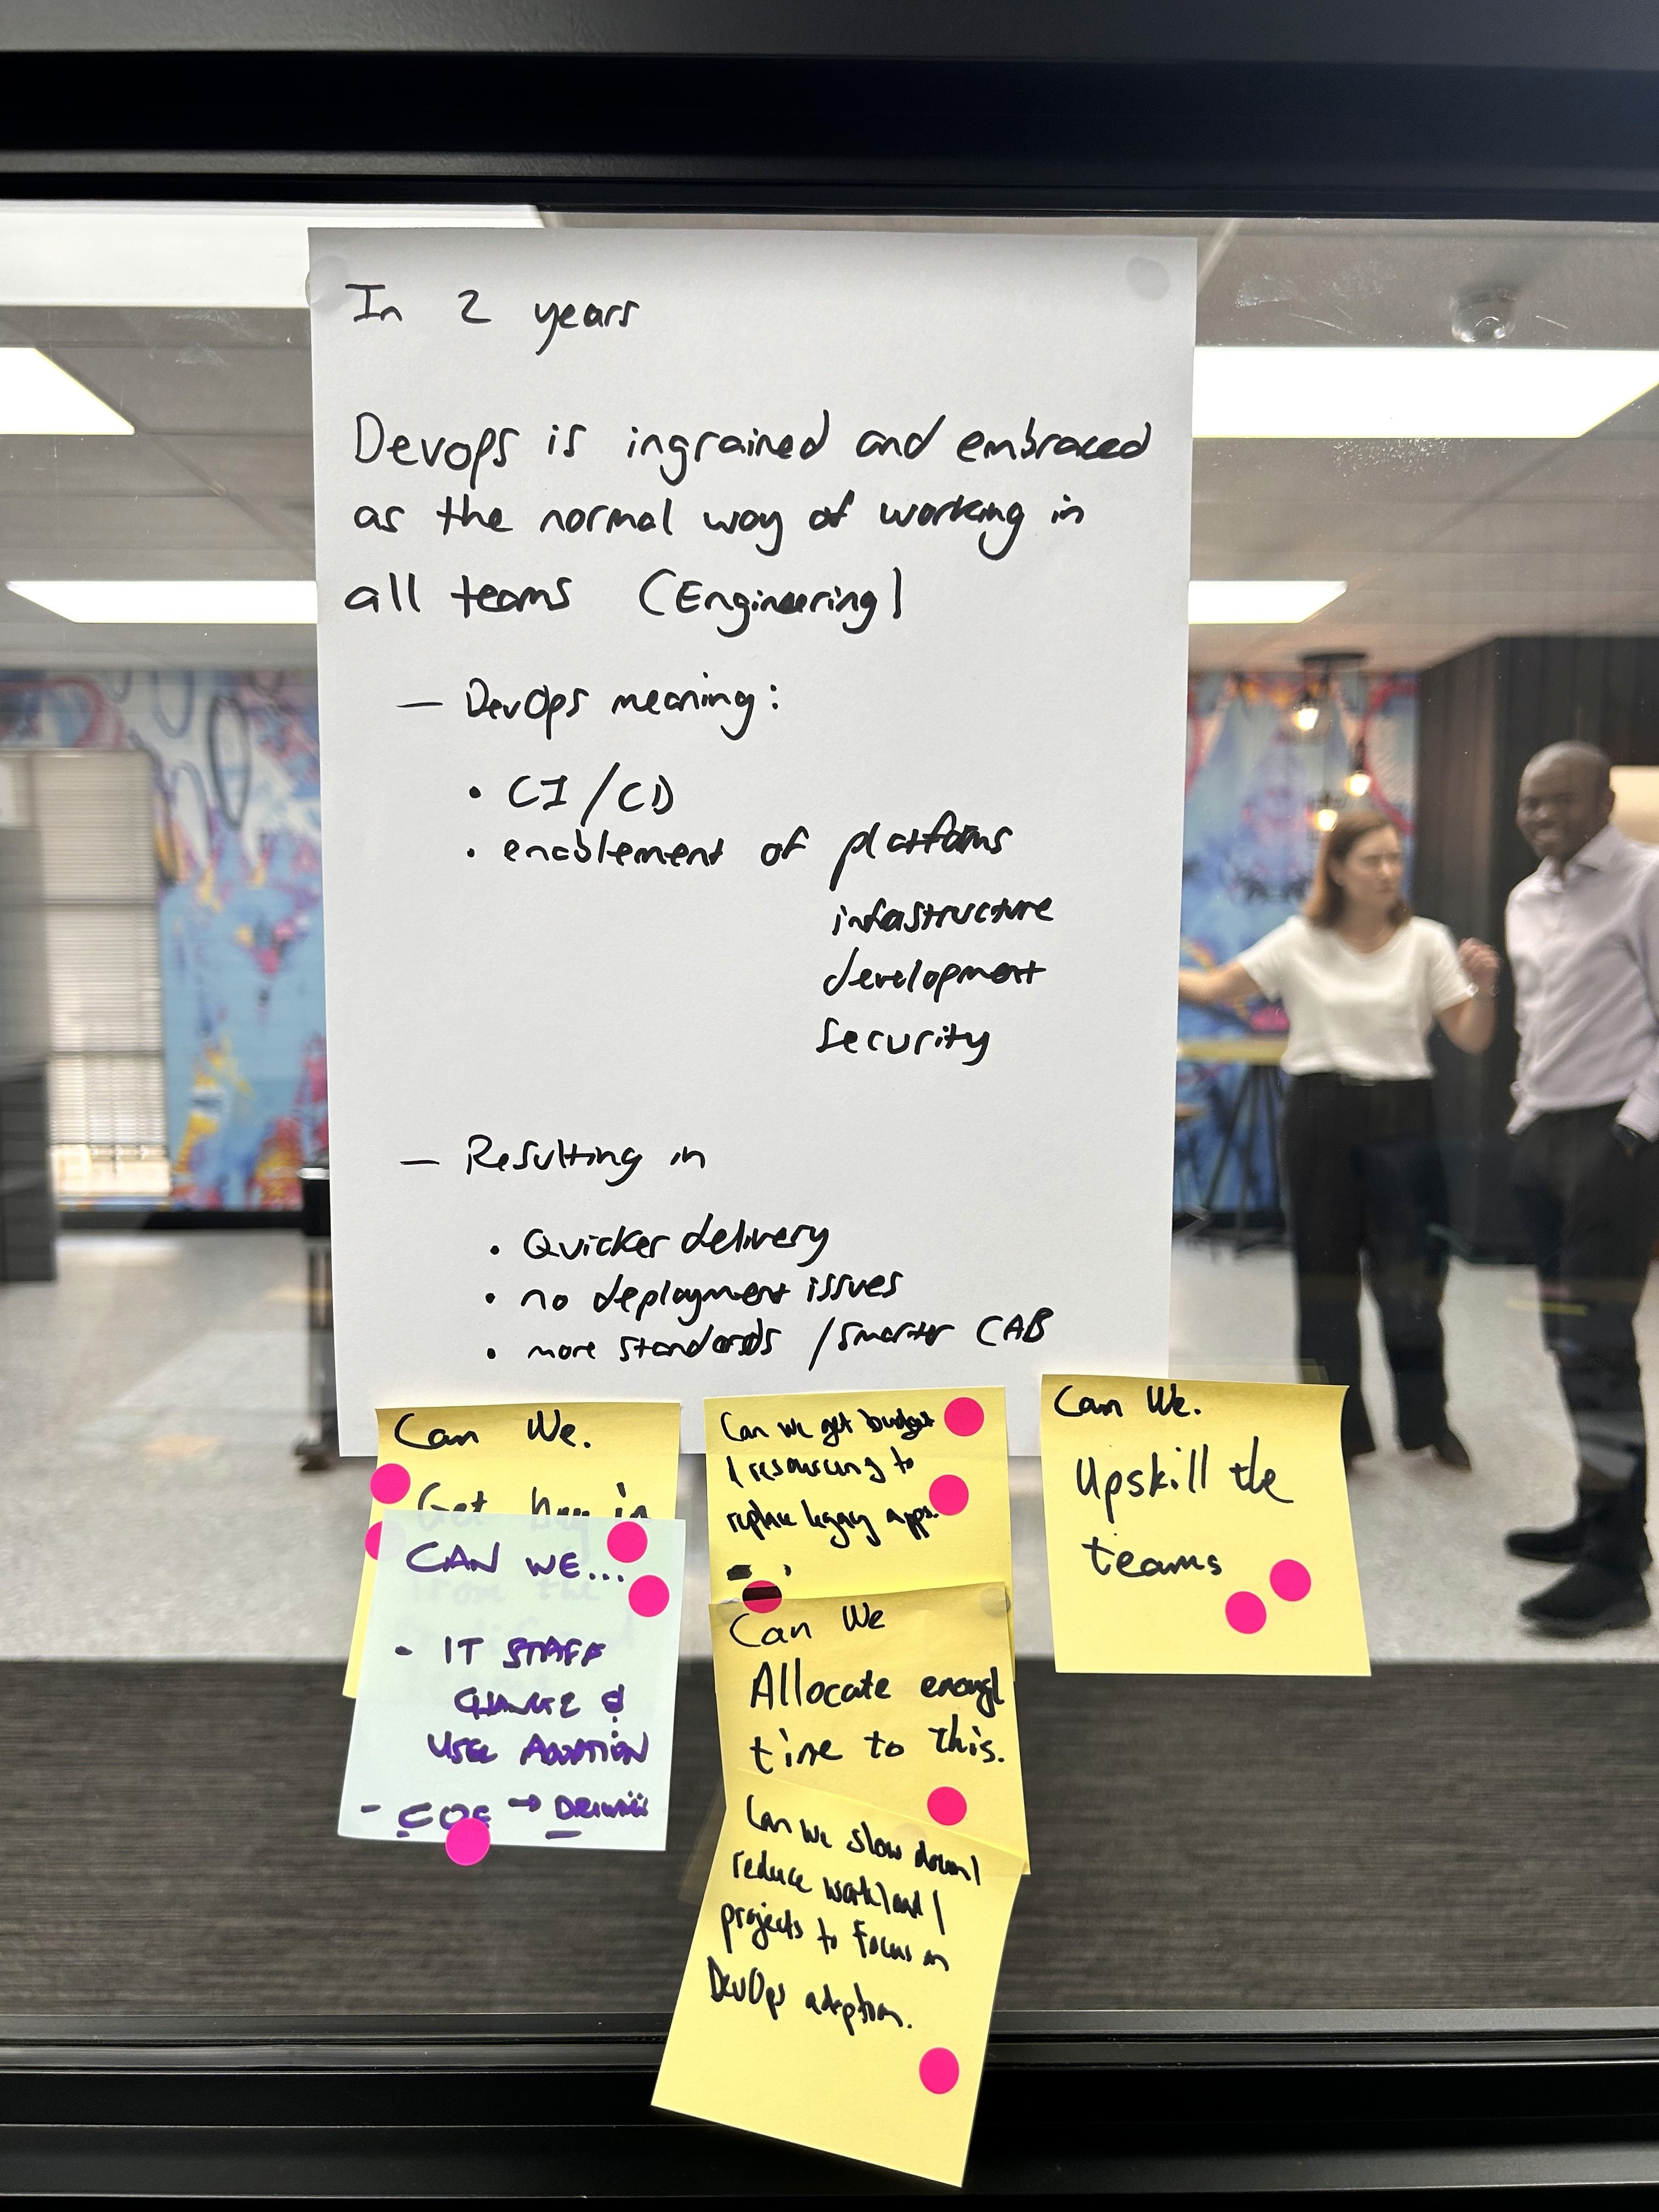 In 2 years
Devops is ingrained and embraced
as the normal way of working in
all teams (Engineering)
— DevOps meaning:
• CI/CD
• enablement of platforms
infastructure
development
Security
— Resulting in
• Quicker delivery
• no deployment issues
• more standards / smarter CAB
Can We.
Get buy in
from the
CAN WE...
• IT STAFF
CHANGE &
USER ADOPTION
- COE →
Can we get budget
/ resourcing to
replace legacy apps.
Can We
Allocate enough
time to this.
Can we slow down/
reduce workload/
projects to focus on
DevOps adoption.
Can We.
Upskill the
teams